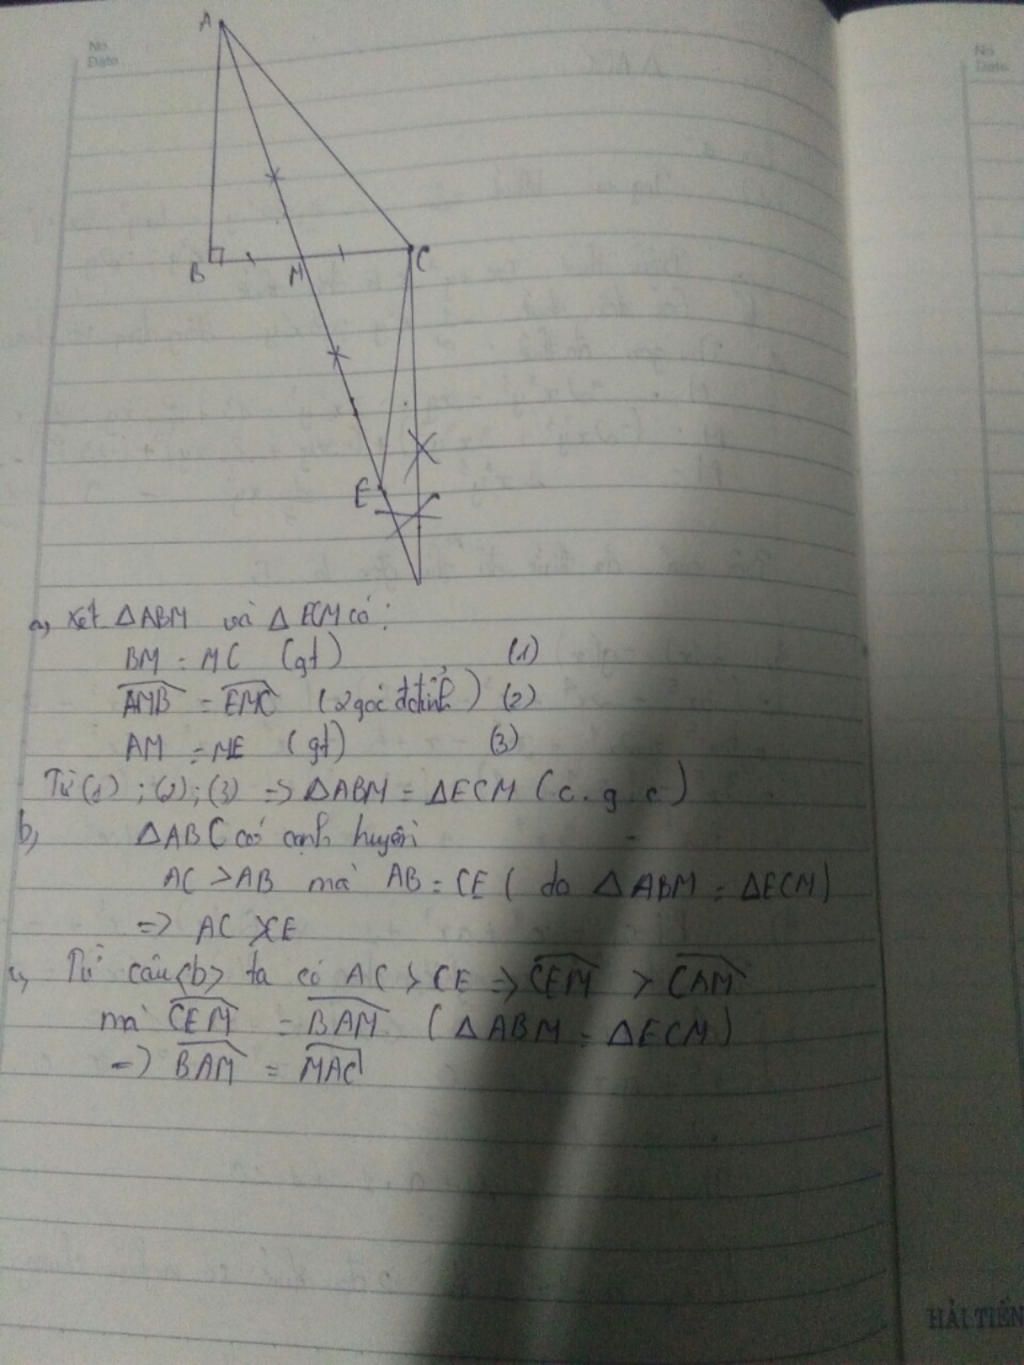 No.
Date
No.
Date
A
B
M
C
E
a, Xét ΔABM và ΔECM có:
BM = MC (gt) (1)
AMB = EMC (2 góc đđỉnh) (2)
AM = ME (gt) (3)
Từ (1) ; (2) ; (3) => ΔABM = ΔECM (c.g.c)
b, ΔABC có cạnh huyền
AC > AB mà AB = CE ( do ΔABM = ΔECM)
=> AC > CE
c, Từ câu <b> ta có AC > CE => CEM > CAM
mà CEM = BAM (ΔABM = ΔECM)
=> BAM = MAC
HẢI TIẾN